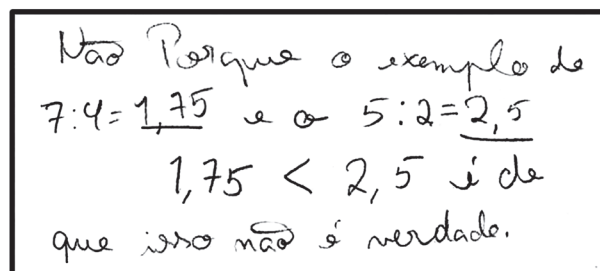 Não Porque o exemplo de
7:4=1,75 e o 5:2=2,5
1,75 < 2,5 i de
que isso não é verdade.